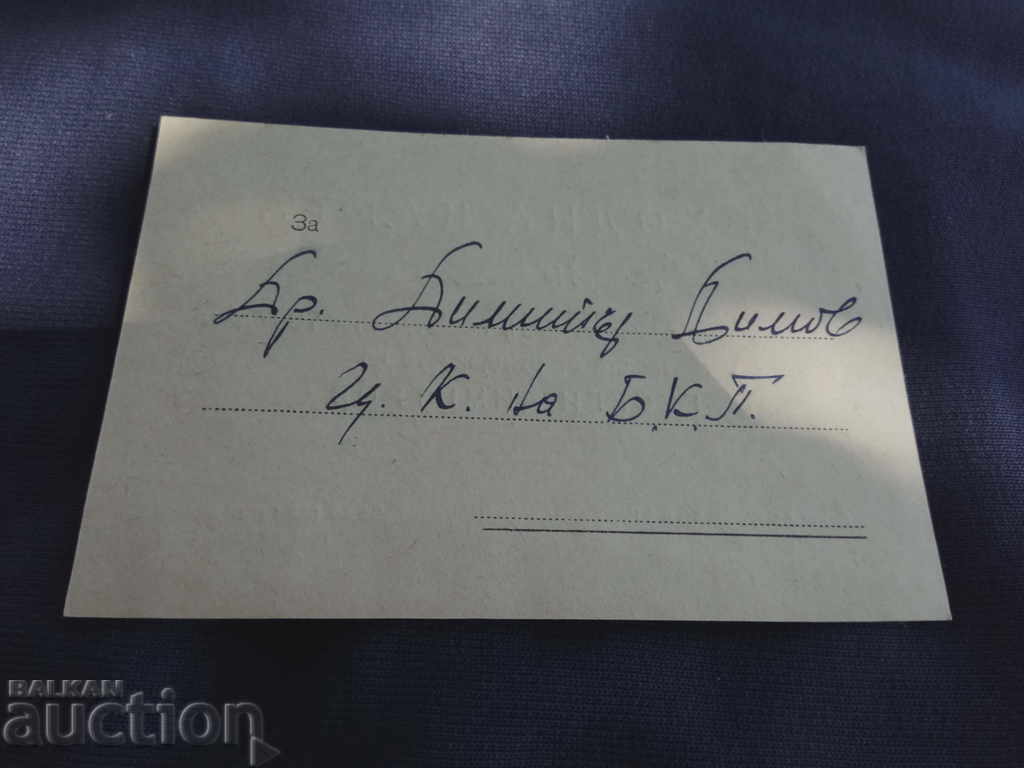 За
Др. Димитър Димов
Ц. К. на Б.К.П.
BALKAN
auction